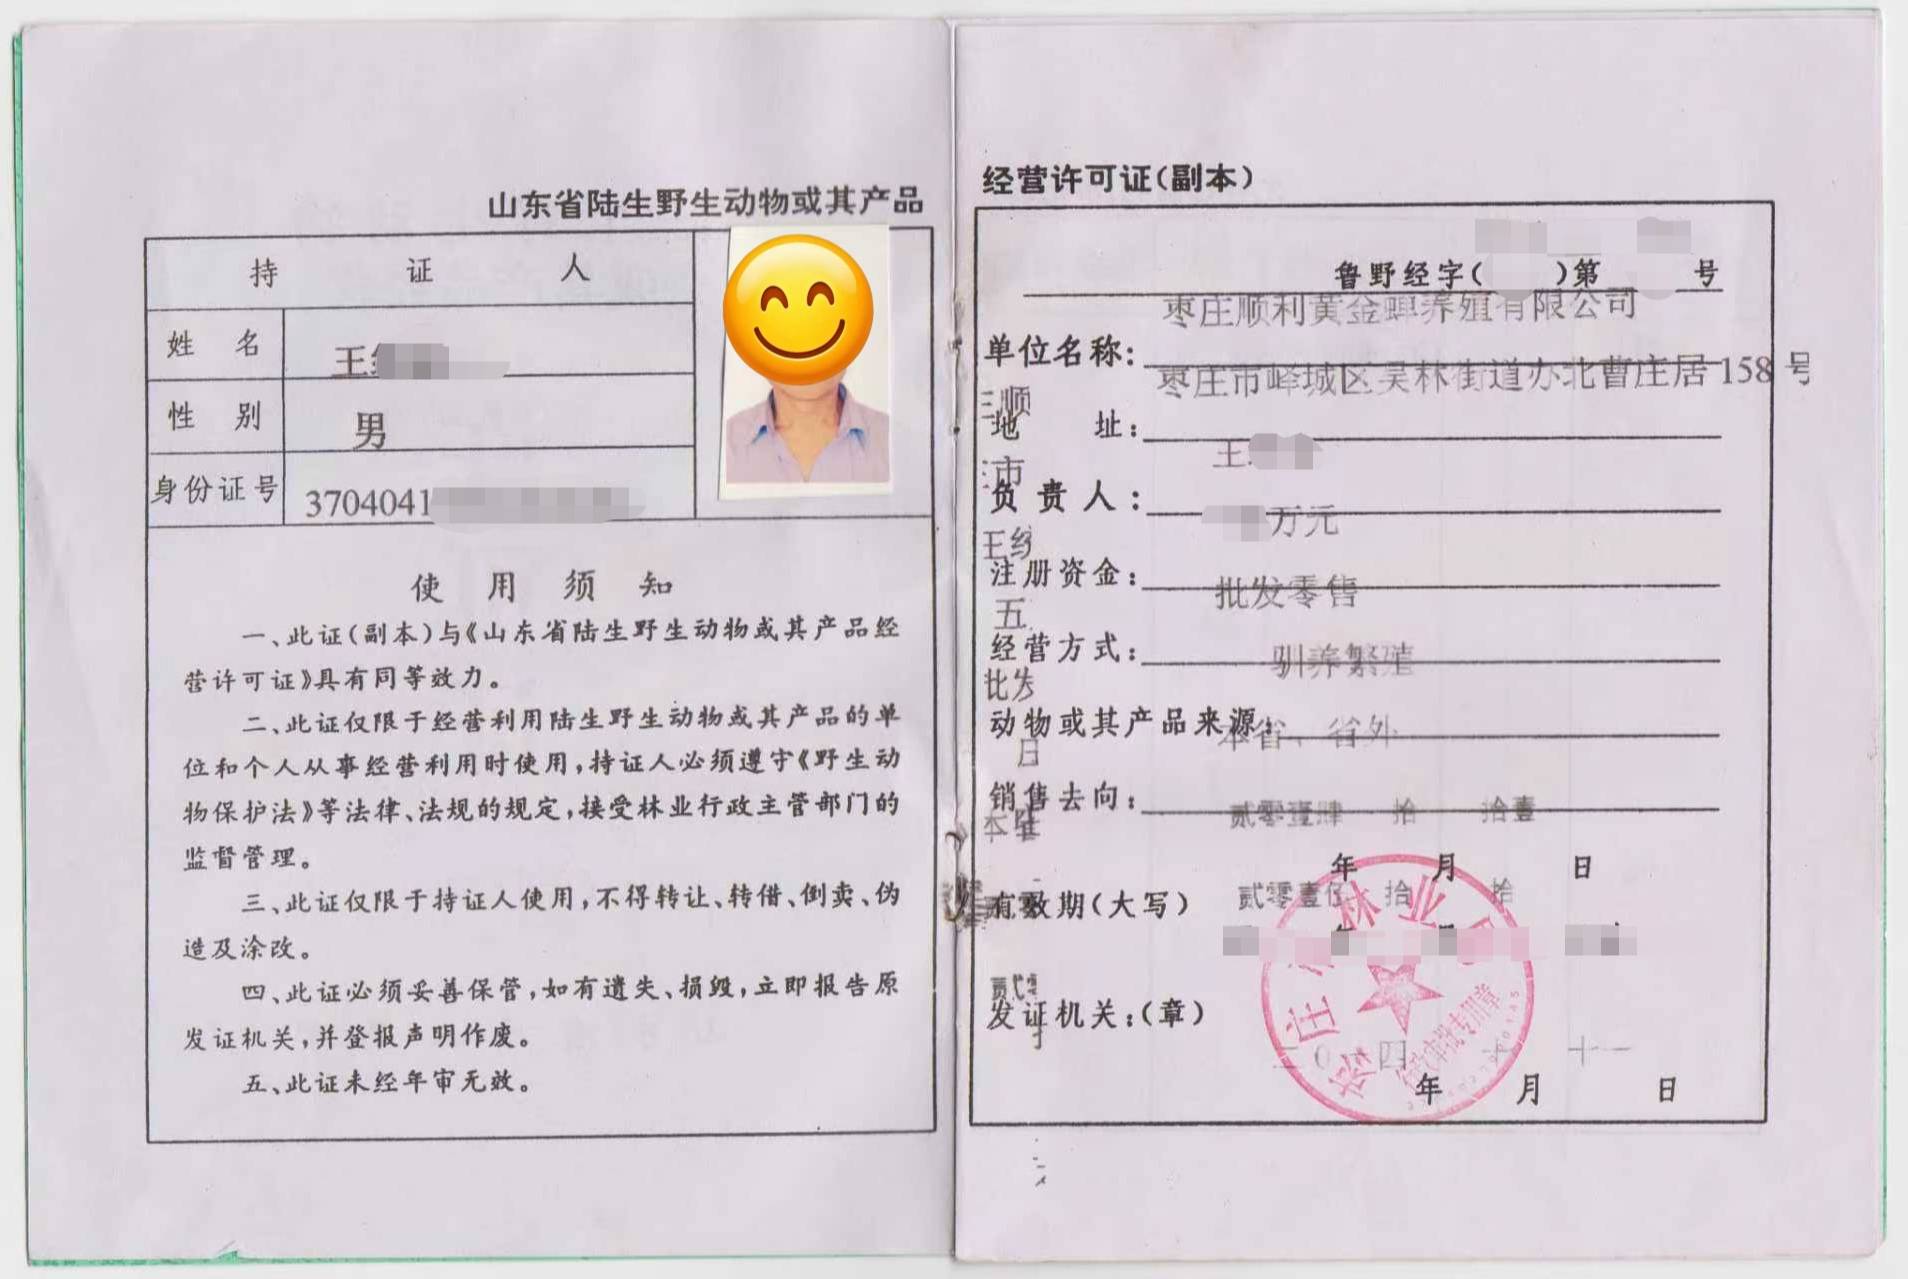 山东省陆生野生动物或其产品
持 证 人
姓 名 王
性 别 男
身份证号 3704041
使 用 须 知
一、此证(副本)与《山东省陆生野生动物或其产品经
营许可证》具有同等效力。
二、此证仅限于经营利用陆生野生动物或其产品的单
位和个人从事经营利用时使用,持证人必须遵守《野生动
物保护法》等法律、法规的规定,接受林业行政主管部门的
监督管理。
三、此证仅限于持证人使用,不得转让、转借、倒卖、伪
造及涂改。
四、此证必须妥善保管,如有遗失、损毁,立即报告原
发证机关,并登报声明作废。
五、此证未经年审无效。
经营许可证(副本)
鲁野经字( )第 号
枣庄顺利黄金蝉养殖有限公司
单位名称:
枣庄市峄城区吴林街道办北曹庄居 158 号
地 址:
王
负 责 人:
万元
注册资金:
批发零售
经营方式:
驯养繁殖
动物或其产品来源:
本省、省外
销售去向:
贰零壹肆 拾 拾壹
年 月 日
有效期(大写) 贰零壹伍 拾 拾
发证机关:(章)
二0一四 十 十一
年 月 日